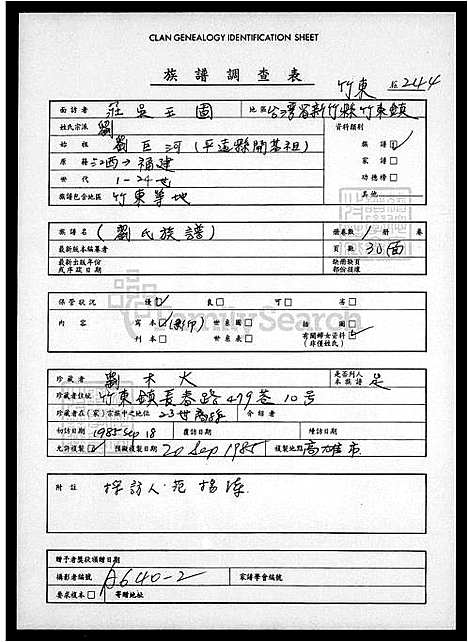 CLAN GENEALOGY IDENTIFICATION SHEET
族譜調查表
竹東 244
面訪者 莊吳玉固 地區 台灣省新竹縣竹東鎮
姓氏宗派 劉 資料類別
始祖 劉巨河(平遠縣開基祖) 族譜
原籍 江西→福建 家譜
世代 1-24世 功德榜
族譜包含地區 竹東等地 其他
族譜名 (劉氏族譜) 冊卷數 1 冊 卷
最新版本編纂者 頁數 30面
最新出版年份或序跋日期 缺冊缺頁部份描述
保管狀況 優 良 可 劣
內容 寫本 (影印) 世系圖 插圖
刊本 世系表 有關婦女資料(非僅姓氏)
FamilySearch
珍藏者 劉木火 是否列入本族譜 是
珍藏者住址 竹東鎮長春路479巷10号
珍藏者在(家)宗族中之地位 23世裔孫 介紹者
初訪日期 1985 Sep 18 復訪日期 續訪日期
允許複製 預擬複製日期 20 Sep 1985 複製地點 高雄市
附註 採訪人:范揚
贈予者獎狀頒贈日期
攝影者編號 A640-2 家譜學會編號
要求複本 寄贈地址